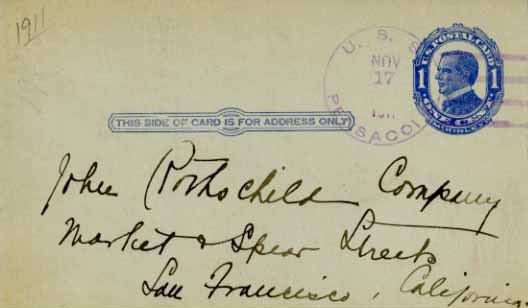 1911
U. S. S.
NOV
17
191
PENSACOLA
U.S. POSTAL CARD
1 1
ONE CENT
McKINLEY
THIS SIDE OF CARD IS FOR ADDRESS ONLY
John Rothschild Company
Market & Spear Streets
San Francisco, California.